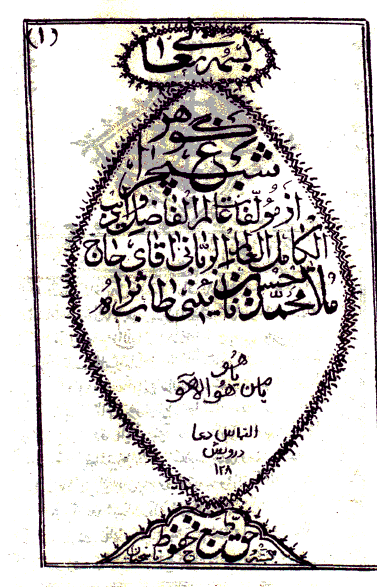 (۱)
بسمه تعالی
گوهر
شب چراغ
از مؤلفات عالم الفاضل
الکامل العالم الربانی آقای حاج
ملا محمد حسن نائینی طاب ثراه
یا هو
یا من هو الا هو
التماس دعا
درویش
۱۲۸
حق طبع محفوظ